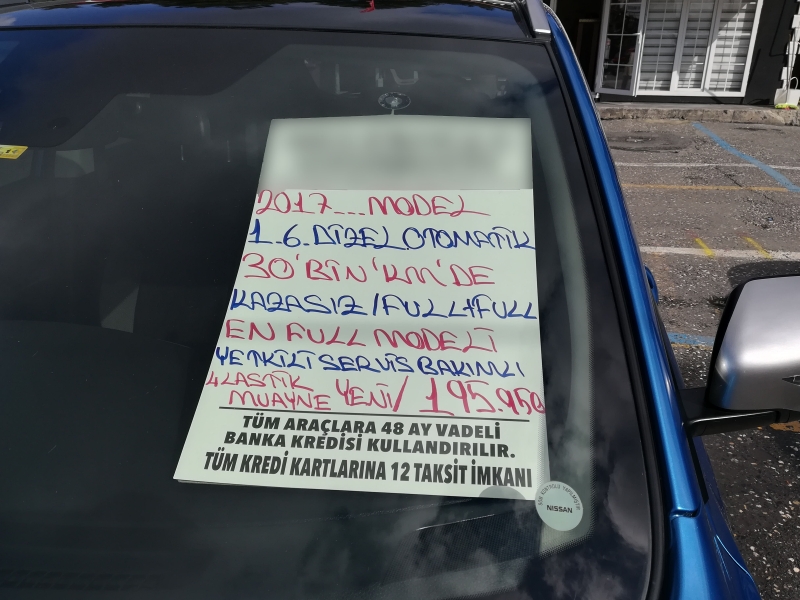 2017...MODEL
1.6.DİZEL.OTOMATİK
30'BİN'KM'DE
KAZASIZ/FULL+FULL
EN FULL MODELİ
YETKİLİ SERVİS BAKIMLI
4 LASTİK
MUAYNE YENİ/ 195.950
TÜM ARAÇLARA 48 AY VADELİ
BANKA KREDİSİ KULLANDIRILIR.
TÜM KREDİ KARTLARINA 12 TAKSİT İMKANI
NISSAN